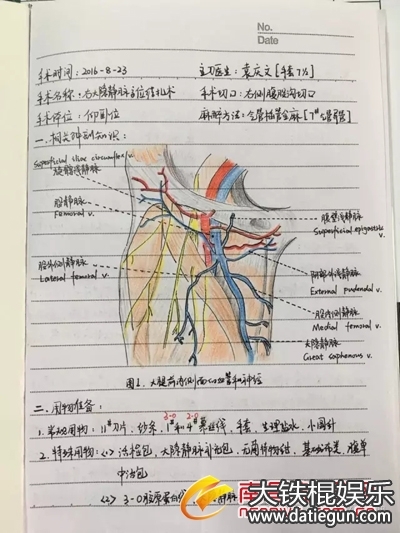 No.
Date
手术时间：2016-8-23 主刀医生：袁庆文［手套7½］
手术名称：右大隐静脉高位结扎术 手术切口：右侧腹股沟切口
手术体位：仰卧位 麻醉方法：全管插管全麻［7#管］
一、相关解剖知识：
Superficial iliac circumflex v.
旋髂浅静脉
股静脉
Femoral v.
股外侧静脉
Lateral femoral v.
腹壁浅静脉
Superficial epigastric v.
阴部外静脉
External pudendal v.
股内侧静脉
Medial femoral v.
大隐静脉
Great saphenous v.
图1. 大腿前内侧面的血管和神经
二、用物准备：
3-0 2-0
1. 常规用物：11#刀片，纱条，1#和4#慕丝线，手套，生理盐水，小圆针
2. 特殊用物：<1> 包，大隐静脉补充包，无菌持物钳，基础布类，腹单
中治包
<2> 3-0胶原蛋白线
大铁棍娱乐
www.datiegun.com